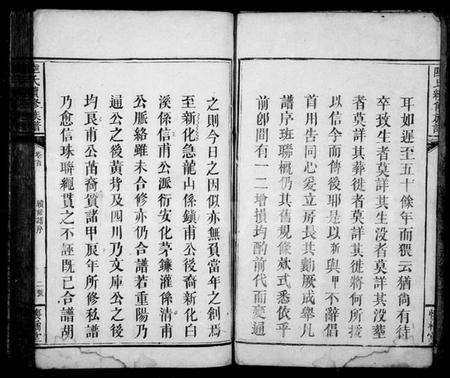 耳如遲至五十餘年而猥云猶尚有待
卒致生者莫詳其生沒者莫詳其沒塟
者莫詳其葬徙者莫詳其徙將何所援
以信今而傳後耶是以新與甲不辭倡
首用告同心爰立房長其勷厥成舉凡
譜序班聯概仍其舊規條欵式悉依乎
前卽間有一二增損均酌前代而變通
之則今日之因似亦無負當年之創焉
至新化急龍山係鎮甫公後裔新化白
溪係信甫公派衍安化茅鎌灌係清甫
公脈絡雖未合修亦仍合譜若重陽乃
通公之後黃背及四川乃文庫公之後
均艮甫公苗裔質諸甲辰年所修私譜
乃愈信珠聯繩貫之不誣既已合譜胡
續修譜序
二